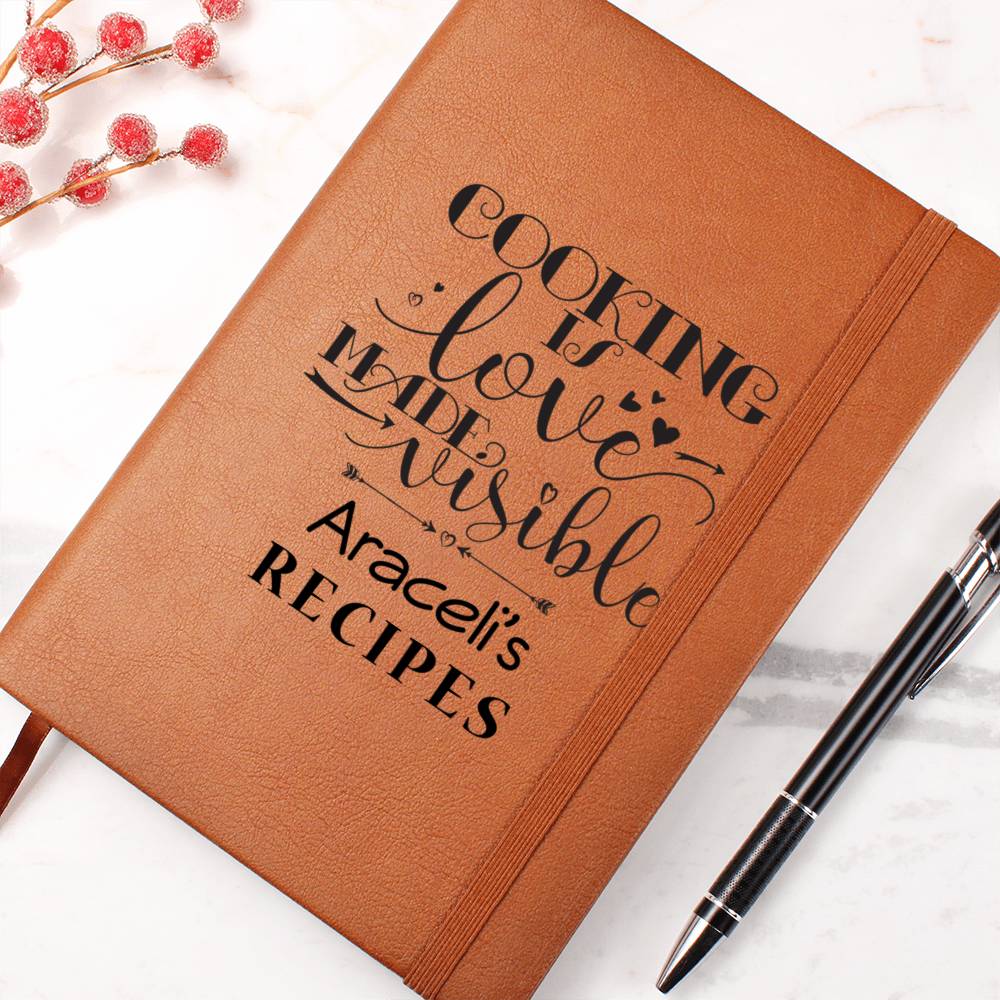 COOKING
IS
love
MADE
visible
Araceli's
RECIPES